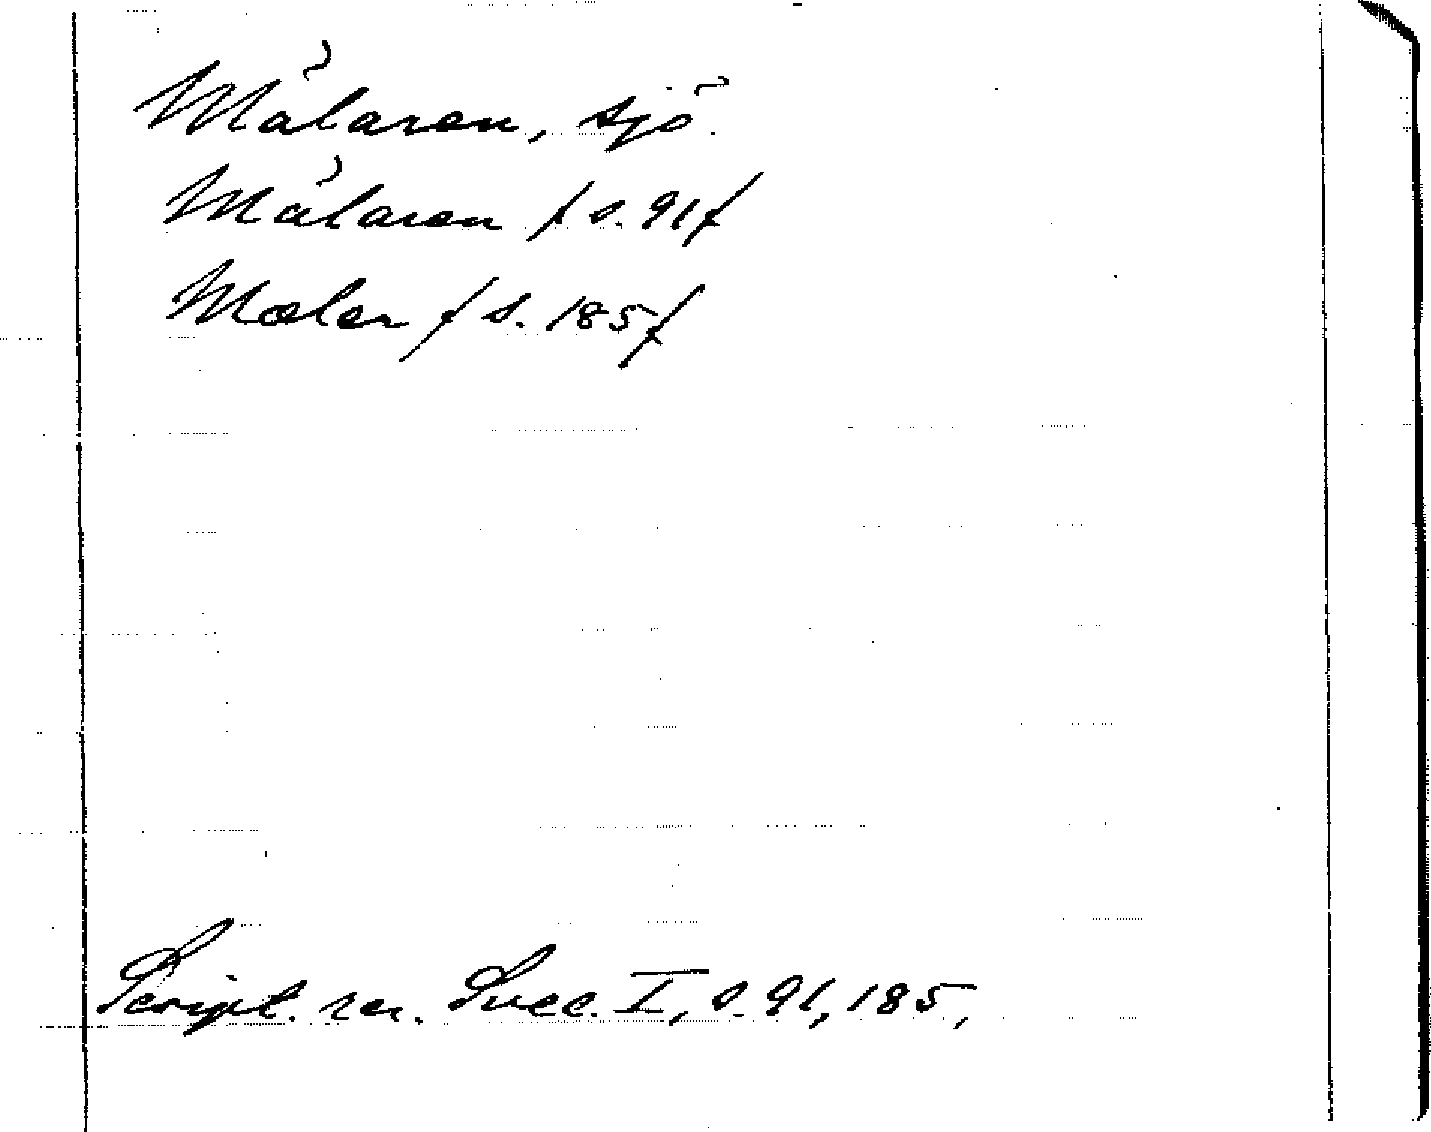 Mälaren, sjö.
Mälaren / s. 91/
Mæler / s. 185/
Script. rer. Svec. I, s. 91, 185,